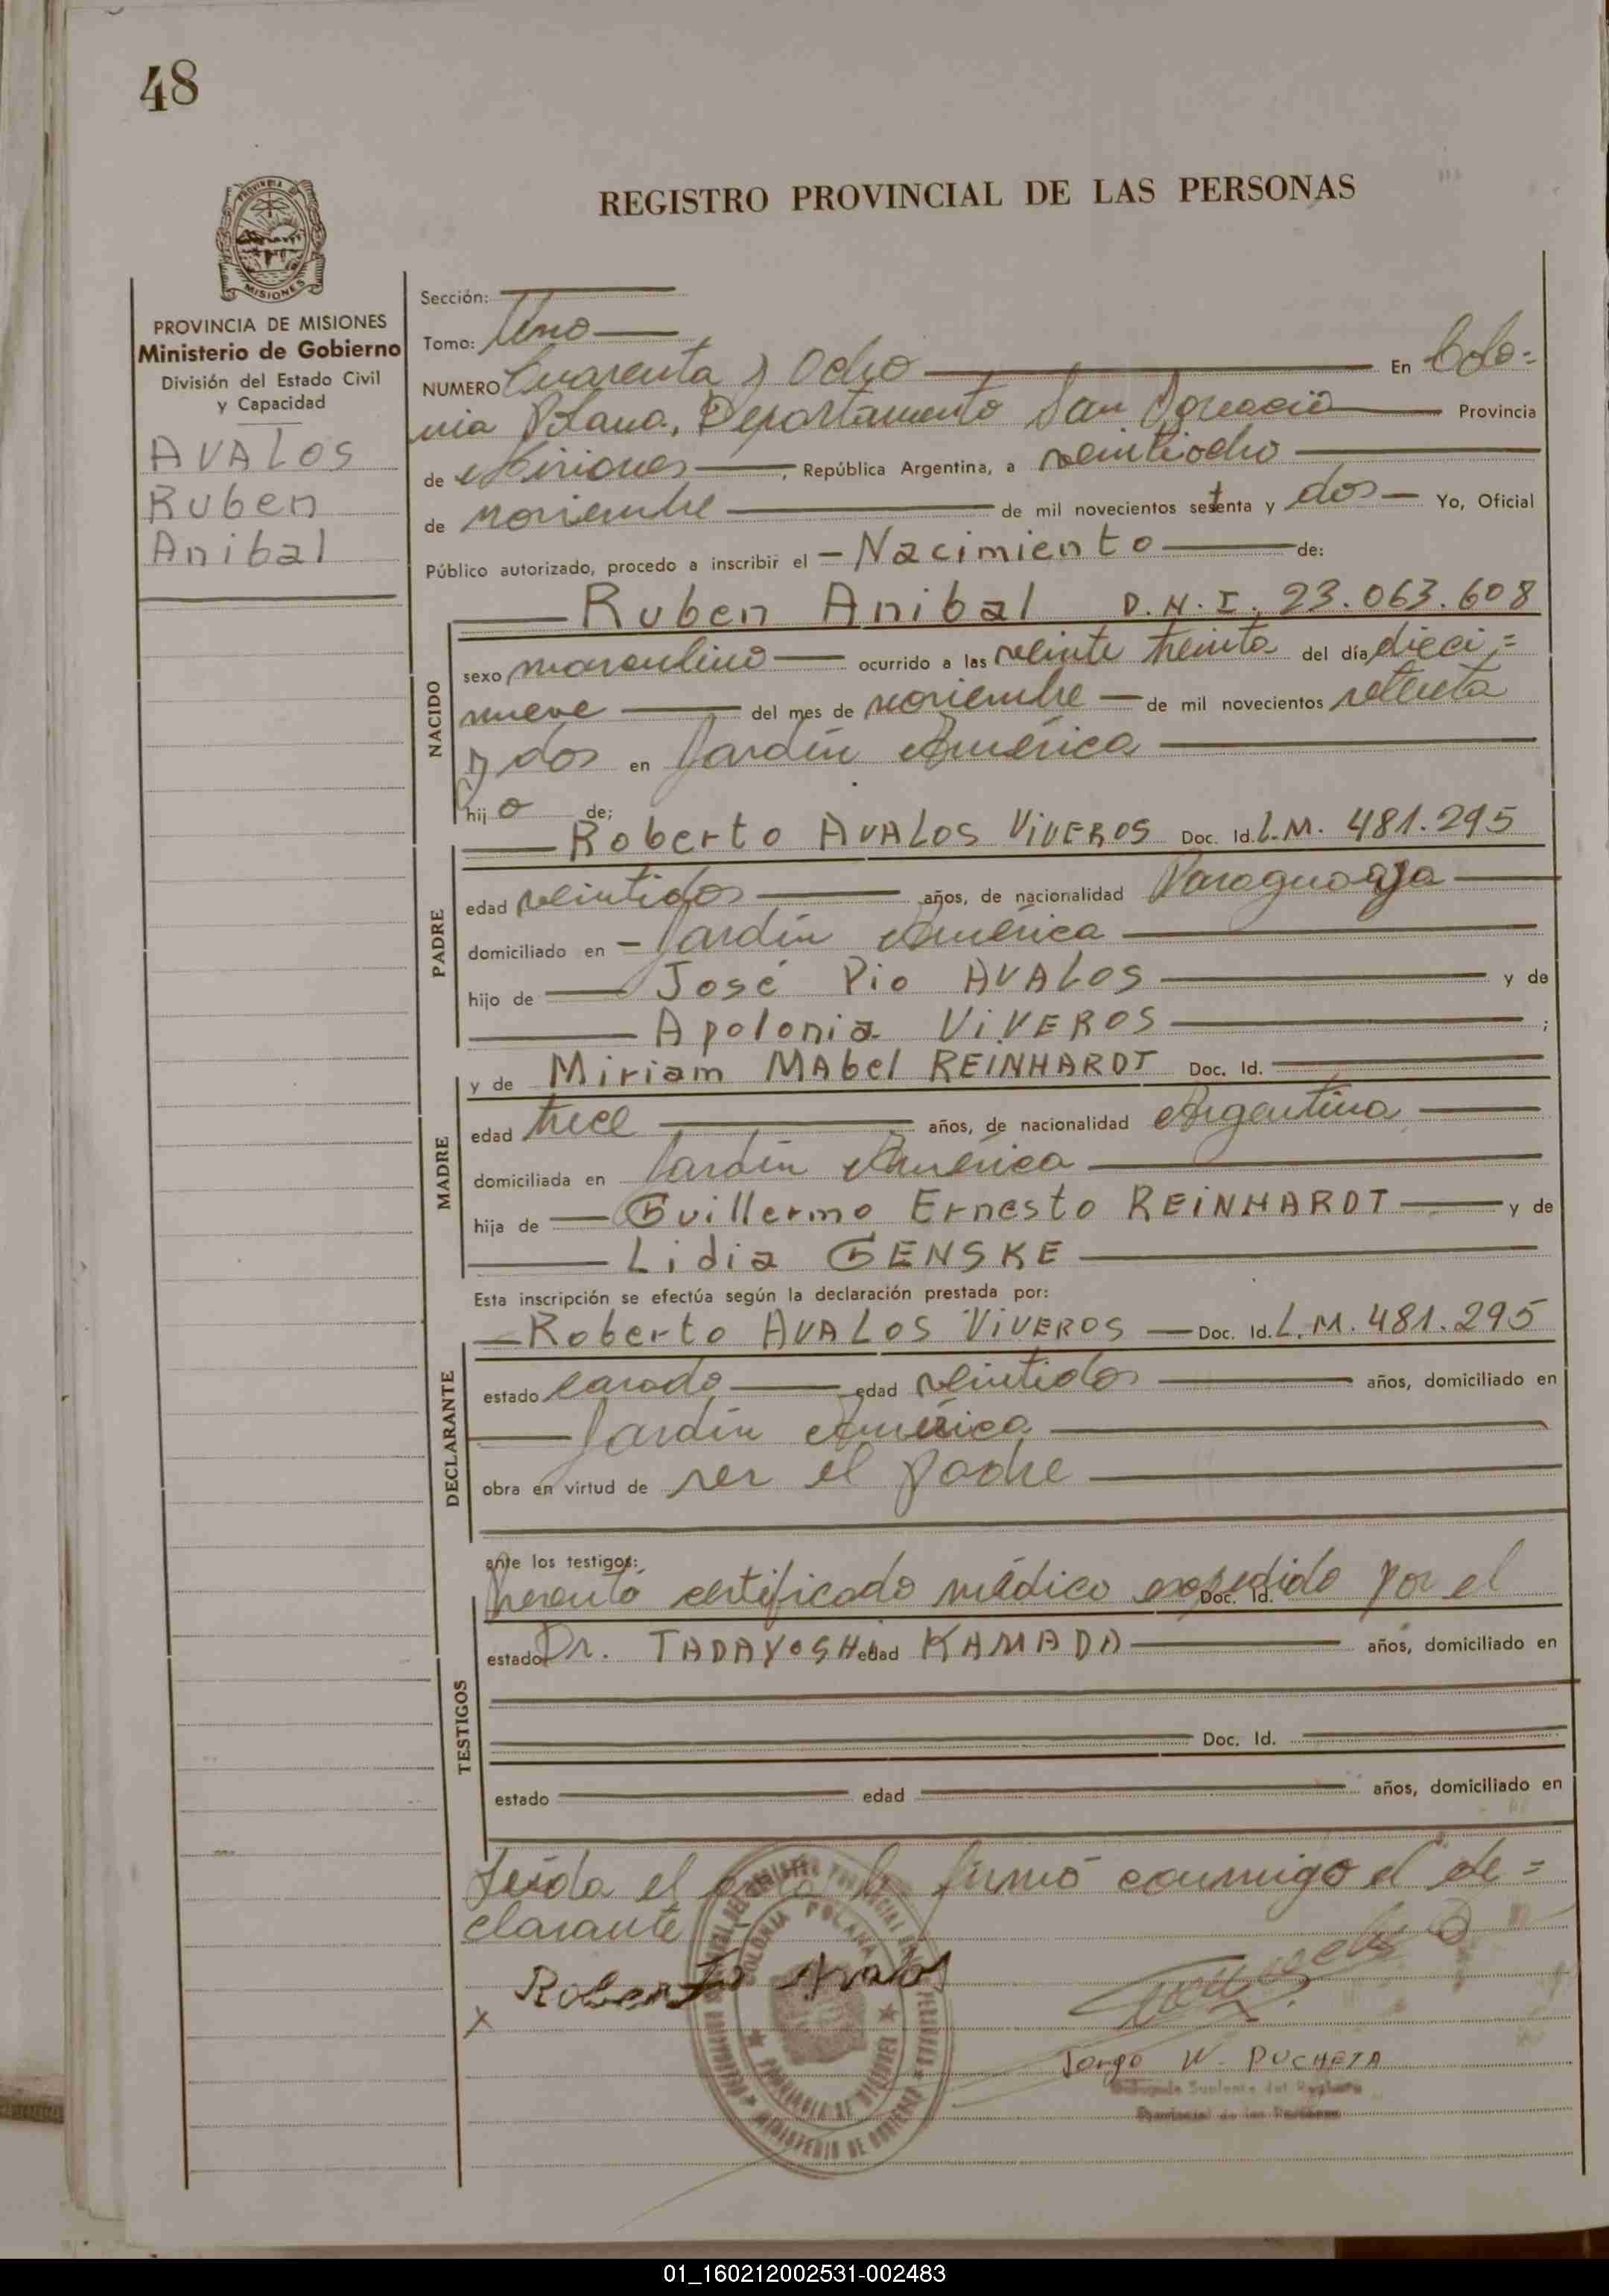 48
REGISTRO PROVINCIAL DE LAS PERSONAS
MISIONES
PROVINCIA DE MISIONES
Ministerio de Gobierno
División del Estado Civil
y Capacidad
AVALOS
Ruben
Anibal
Sección:
Tomo: Uno
NUMERO Cuarenta y Ocho En Colo=
nia Polana, Departamento San Ignacio Provincia
de Misiones, República Argentina, a veintiocho
de noviembre de mil novecientos setenta y dos Yo, Oficial
Público autorizado, procedo a inscribir el Nacimiento de:
Ruben Anibal D.N.I. 23.063.608
NACIDO
sexo masculino ocurrido a las veinte treinta del día dieci=
nueve del mes de noviembre de mil novecientos setenta
y dos en Jardín América
hijo de;
PADRE
Roberto AVALOS ViVEROS Doc. Id. L.M. 481.295
edad veintidos años, de nacionalidad Paraguaya
domiciliado en Jardín América
hijo de José Pio AVALOS y de
Apolonia ViVEROS ;
MADRE
y de Miriam MAbel REINHARDT Doc. Id.
edad trece años, de nacionalidad Argentina
domiciliada en Jardín América
hija de Guillermo Ernesto REiNHARDT y de
Lidia GENSKE
Esta inscripción se efectúa según la declaración prestada por:
DECLARANTE
Roberto AVALOS ViVEROS Doc. Id. L.M. 481.295
estado casado edad veintidos años, domiciliado en
Jardín América
obra en virtud de ser el padre
TESTIGOS
ante los testigos:
Presentó certificado médico expedido por el Doc. Id.
estado Dr. TADAYOSHI edad KAMADA años, domiciliado en
Doc. Id.
estado edad años, domiciliado en
Leída el acta la firmó conmigo el de=
clarante
Roberto Avalos
x
COLONIA POLANA
PROVINCIA DE MISIONES
MINISTERIO DE GOBIERNO
Jorge W. PUCHETA
Delegado Suplente del Registro
Provincial de las Personas
01_160212002531-002483